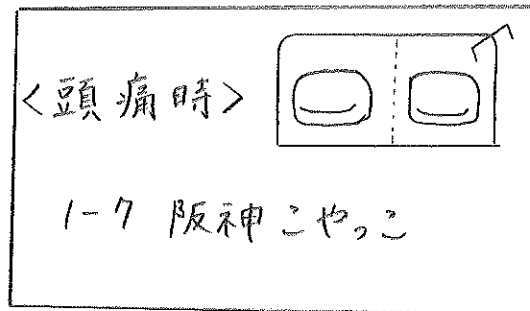 <頭痛時>
1-7 阪神こやっこ